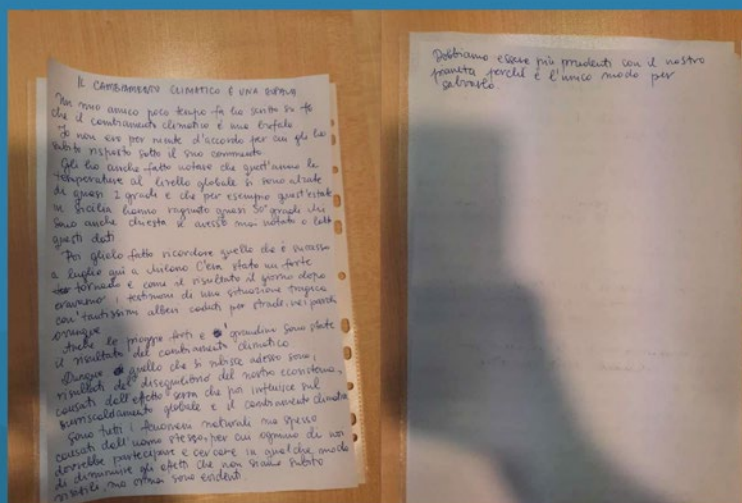 IL CAMBIAMENTO CLIMATICO È UNA BUFALA
Un mio amico poco tempo fa ha scritto su fb
che il cambiamento climatico è una bufala
Io non ero per niente d'accordo per cui gli ho
subito risposto sotto il suo commento
Gli ho anche fatto notare che quest'anno le
temperature al livello globale si sono alzate
di quasi 2 gradi e che per esempio quest'estate
in Sicilia hanno raggiunto quasi 50° gradi. Mi
sono anche chiesta se avesse mai notato o letto
questi dati
Poi glielo fatto ricordare quello che è successo
a luglio qui a Milano C'era stato un forte
tornado e come il risultato il giorno dopo
eravamo i testimoni di una situazione tragica
con tantissimi alberi caduti per strade, nei parchi
ovunque
Anche le piogge forti e grandine sono state
il risultato del cambiamento climatico
Dunque quello che si subisce adesso sono,
risultati del disequilibrio del nostro ecosistema,
causati dall'effetto serra che poi influisce sul
surriscaldamento globale e il cambiamento climatico
Sono tutti i fenomeni naturali ma spesso
causati dall'uomo stesso, per cui ognuno di noi
dovrebbe partecipare e cercare in qualche modo
di diminuire gli effetti che non siano subito
visibili, ma ormai sono evidenti.
Dobbiamo essere più prudenti con il nostro
pianeta perché è l'unico modo per
salvarlo.